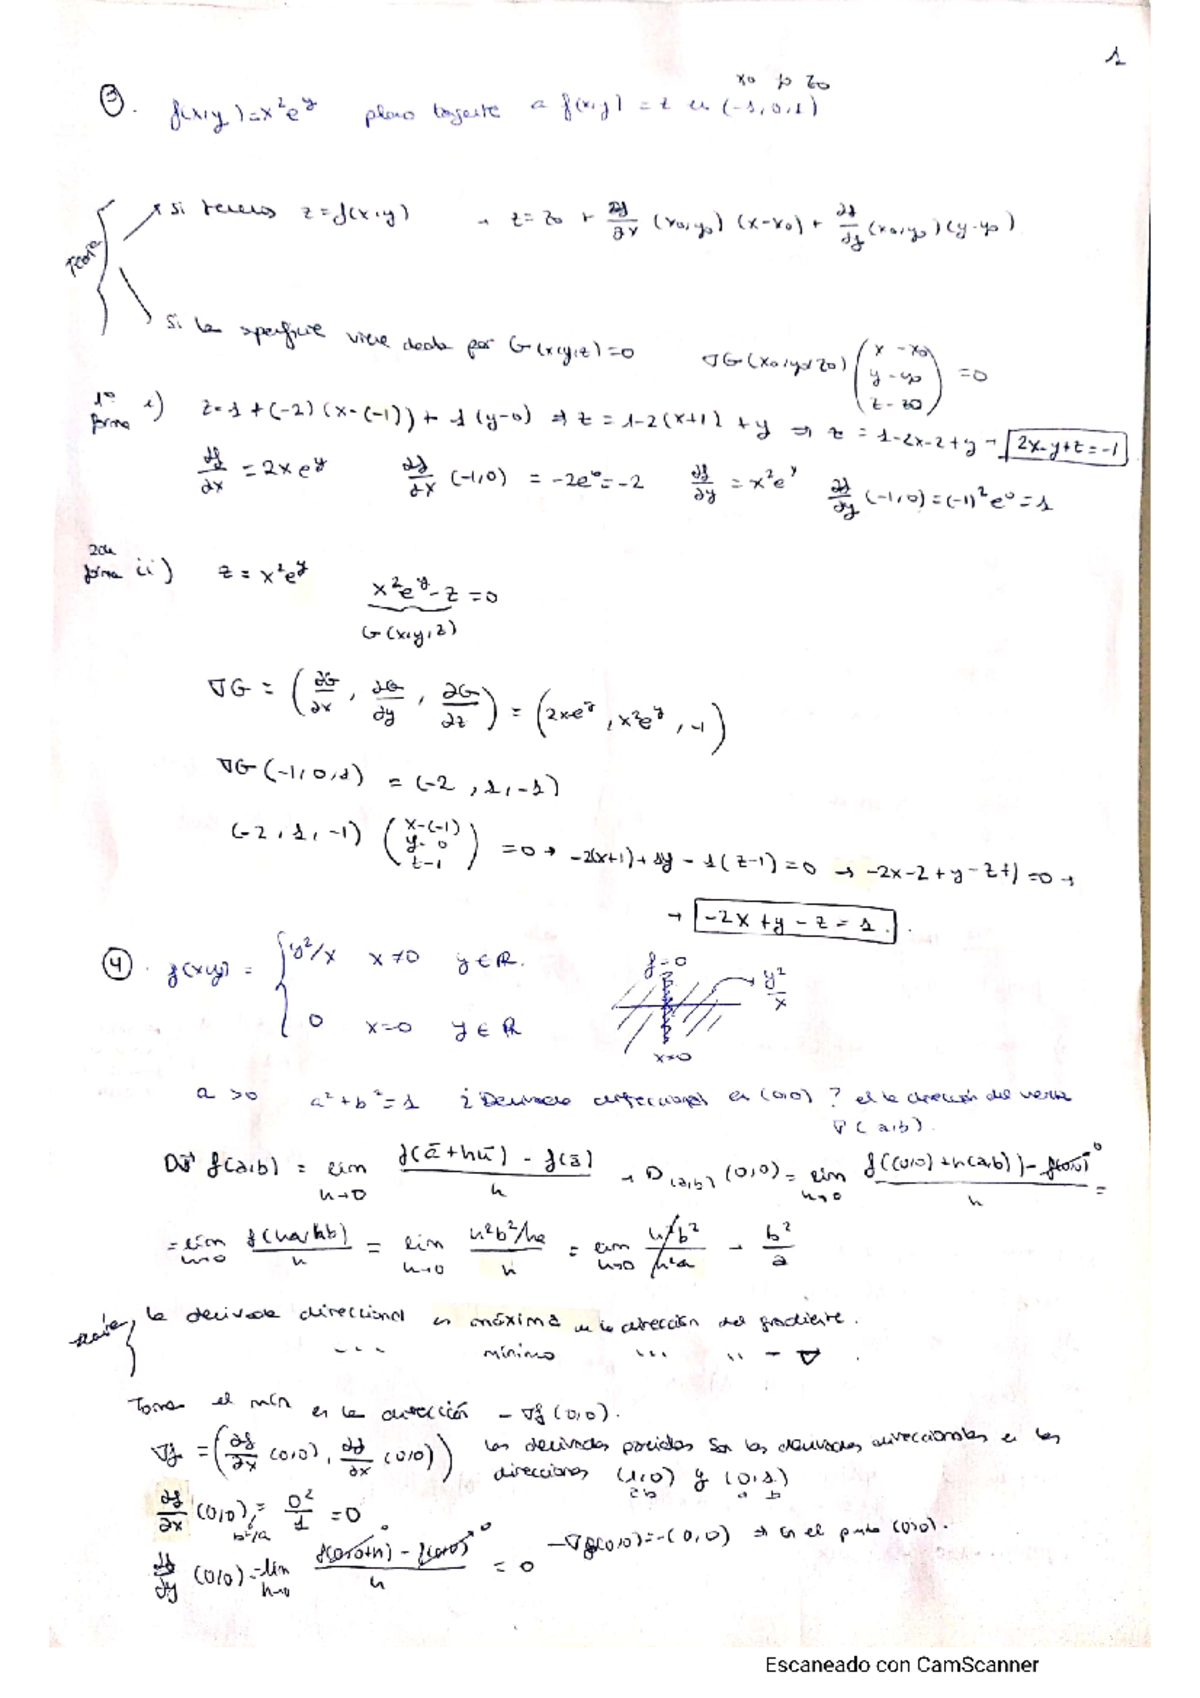 1
x0 y0 z0
③. f(x,y)=x²e^y plano tangente a f(x,y) = z en (-1,0,1)
Teoría
si tenemos z=f(x,y) → z= z0 + ∂f/∂x (x0,y0) (x-x0) + ∂f/∂y (x0,y0) (y-y0)
Si la superficie viene dada por G(x,y,z)=0 ∇G(x0,y0,z0) (x-x0 y-y0 z-z0) =0
1º forma i) z=1+(-2)(x-(-1))+1(y-0) ⇒ z=1-2(x+1)+y ⇒ z=1-2x-2+y → 2x-y+z=-1
∂f/∂x = 2xe^y ∂f/∂x (-1,0) = -2e^0=-2 ∂f/∂y = x²e^y ∂f/∂y (-1,0)=(-1)²e^0=1
2da forma ii) z=x²e^y x²e^y-z=0
G(x,y,z)
∇G = (∂G/∂x, ∂G/∂y, ∂G/∂z) = (2xe^y, x²e^y, -1)
∇G(-1,0,1) = (-2,1,-1)
(-2,1,-1) (x-(-1) y-0 z-1) =0 → -2(x+1)+1y-1(z-1)=0 → -2x-2+y-z+1=0 →
→ -2x+y-z=1.
④. f(x,y) = { y²/x x≠0 y∈ℝ.
0 x=0 y∈ℝ
f=0
y²/x
x=0
a>0 a²+b²=1 ¿Derivada direccional en (0,0)? en la dirección del vector
v(a,b).
Dv f(a,b) = lím h→0 f(ā+hū)-f(ā)/h → D(a,b) (0,0)= lím h→0 f((0,0)+h(a,b))-f(0,0)/h 0 =
= lím h→0 f(ha,hb)/h = lím h→0 h²b²/ha/h = lím h→0 h²b²/h²a → b²/a
teoría, la derivada direccional es máxima en la dirección del gradiente.
--- mínimo ... " - ∇.
Toma el mín en la dirección -∇f(0,0).
∇f = (∂f/∂x (0,0), ∂f/∂x (0,0)) las derivadas parciales son las derivadas direccionales en las
direcciones (1,0) y (0,1)
a b a b
∂f/∂x (0,0) = 0²/1 = 0
b²/a
∂f/∂y (0,0) = lím h→0 f(0,0+h) 0 - f(0,0) 0/h = 0 -∇f(0,0)=-(0,0) ⇒ en el punto (0,0).
Escaneado con CamScanner